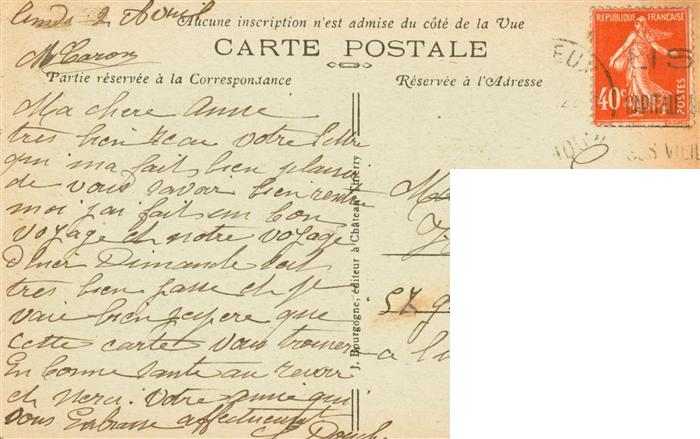 Lundi 2 Avril
Aucune inscription n'est admise du côté de la Vue
M Caron
CARTE POSTALE
Partie réservée à la Correspondance
Réservée à l'Adresse
RÉPUBLIQUE FRANÇAISE
40c
POSTES
LIS
CAPITALE
Ma chere Annie
tres bien recu votre lettre
qui ma fait bien plaisir
de vous savoir bien rentre
moi j'ai fait un bon
voyage et notre voyage
d'hier Dimanche sait
tres bien passe et je
vais bien jespere que
cette cartet vous trouvera
En bonne sante au revoir
et merci. Votre amie qui
vous Embrasse affectueusement
J. Bourgogne, éditeur à Château-Thierry
57
a